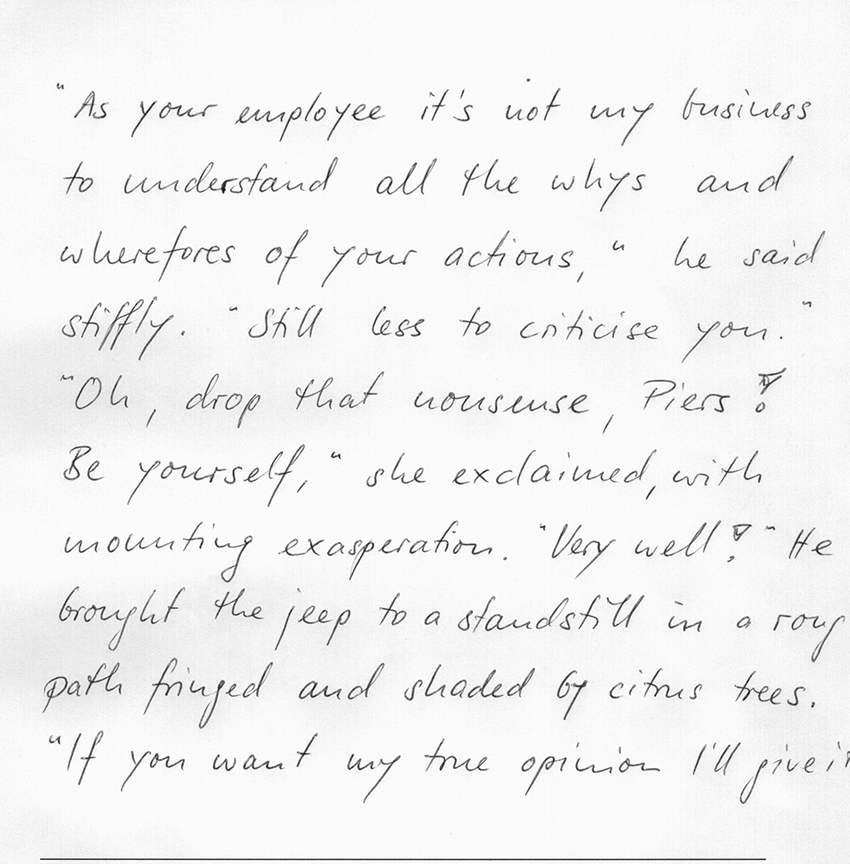 "As your employee it's not my business
to understand all the whys and
wherefores of your actions," he said
stiffly. "Still less to criticise you."
"Oh, drop that nonsense, Piers!
Be yourself," she exclaimed, with
mounting exasperation. "Very well!" He
brought the jeep to a standstill in a
path fringed and shaded by citrus trees.
"If you want my true opinion I'll give